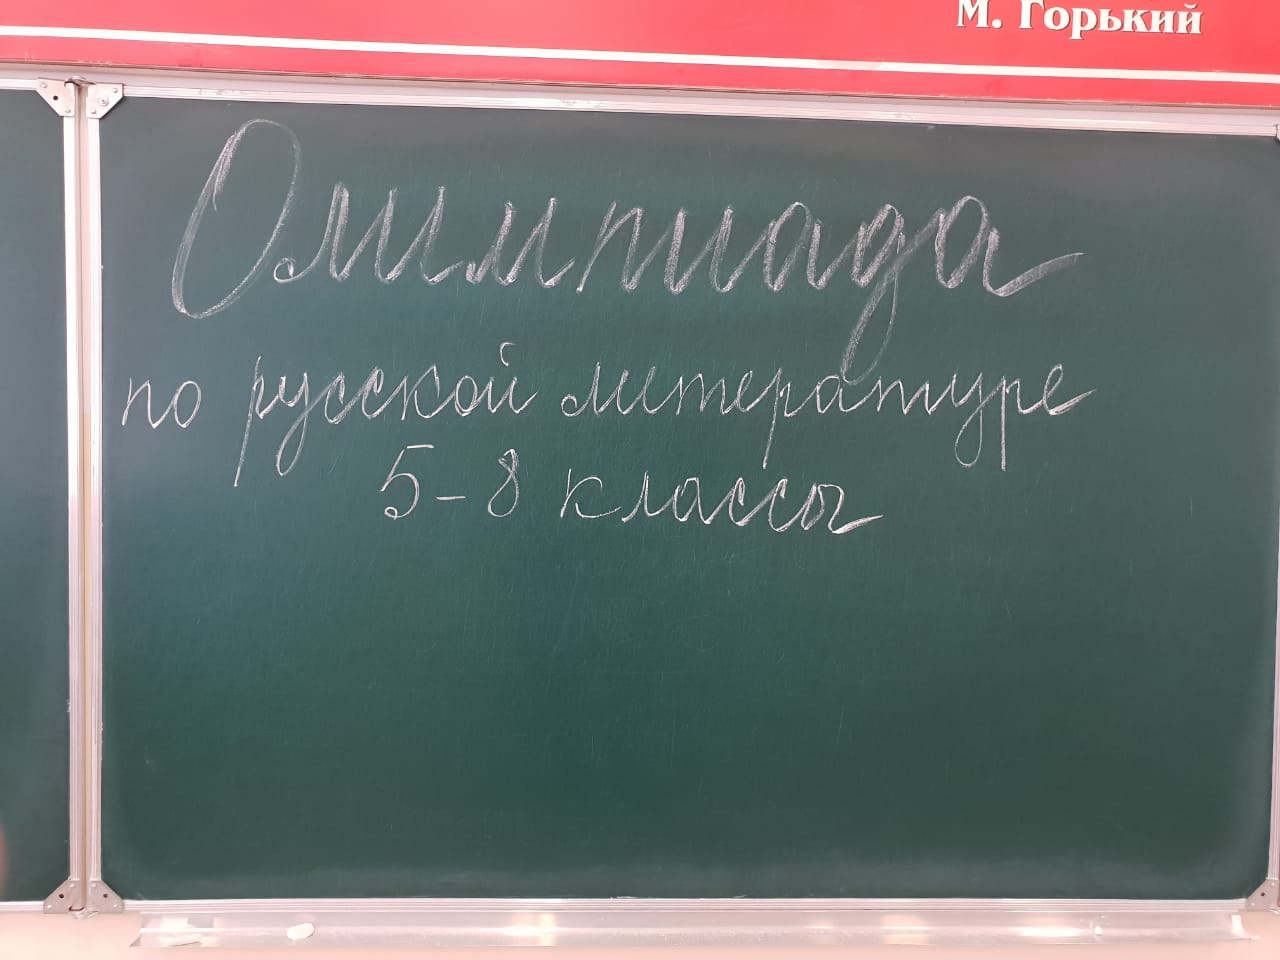 М. Горький
Олимпиада
по русской литературе
5-8 классы